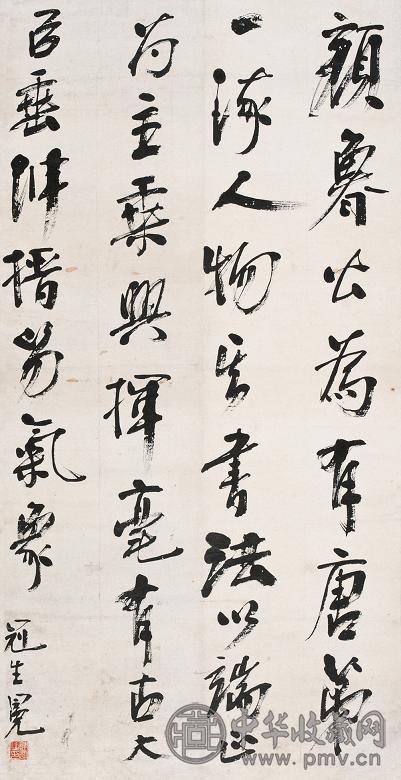 顏魯公為有唐第
一流人物其書法以端
為主乘興揮毫有古大
臣垂紳搢笏氣象
冠生
中华收藏网
www.pmv.cn